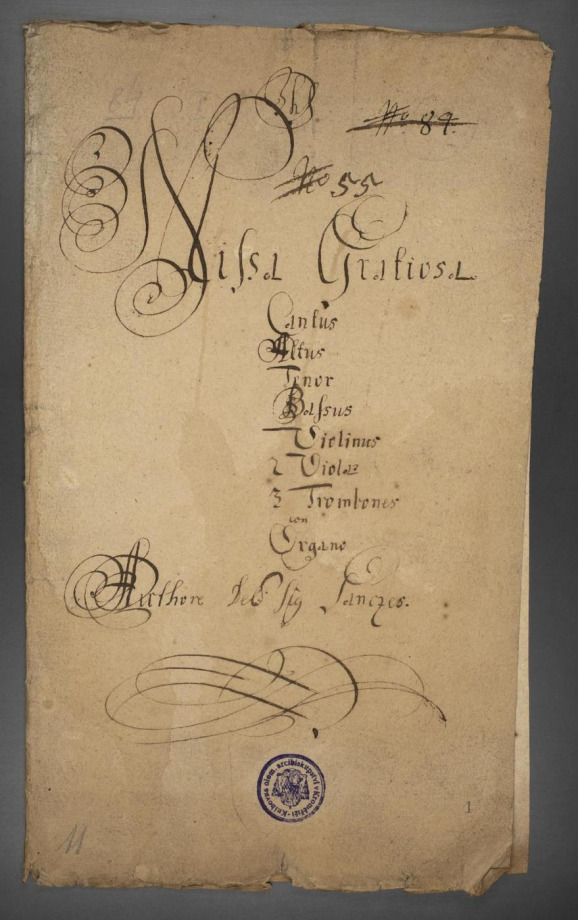 No 84.
No 55
Missa Gratiosa
Cantus
Altus
Tenor
Bassus
Violinus
2 Violæ
3 Trombones
con
Organo
Authore Del Sig Sances.
Knihovna olom. arcibiskupství v Kroměříži
1
11